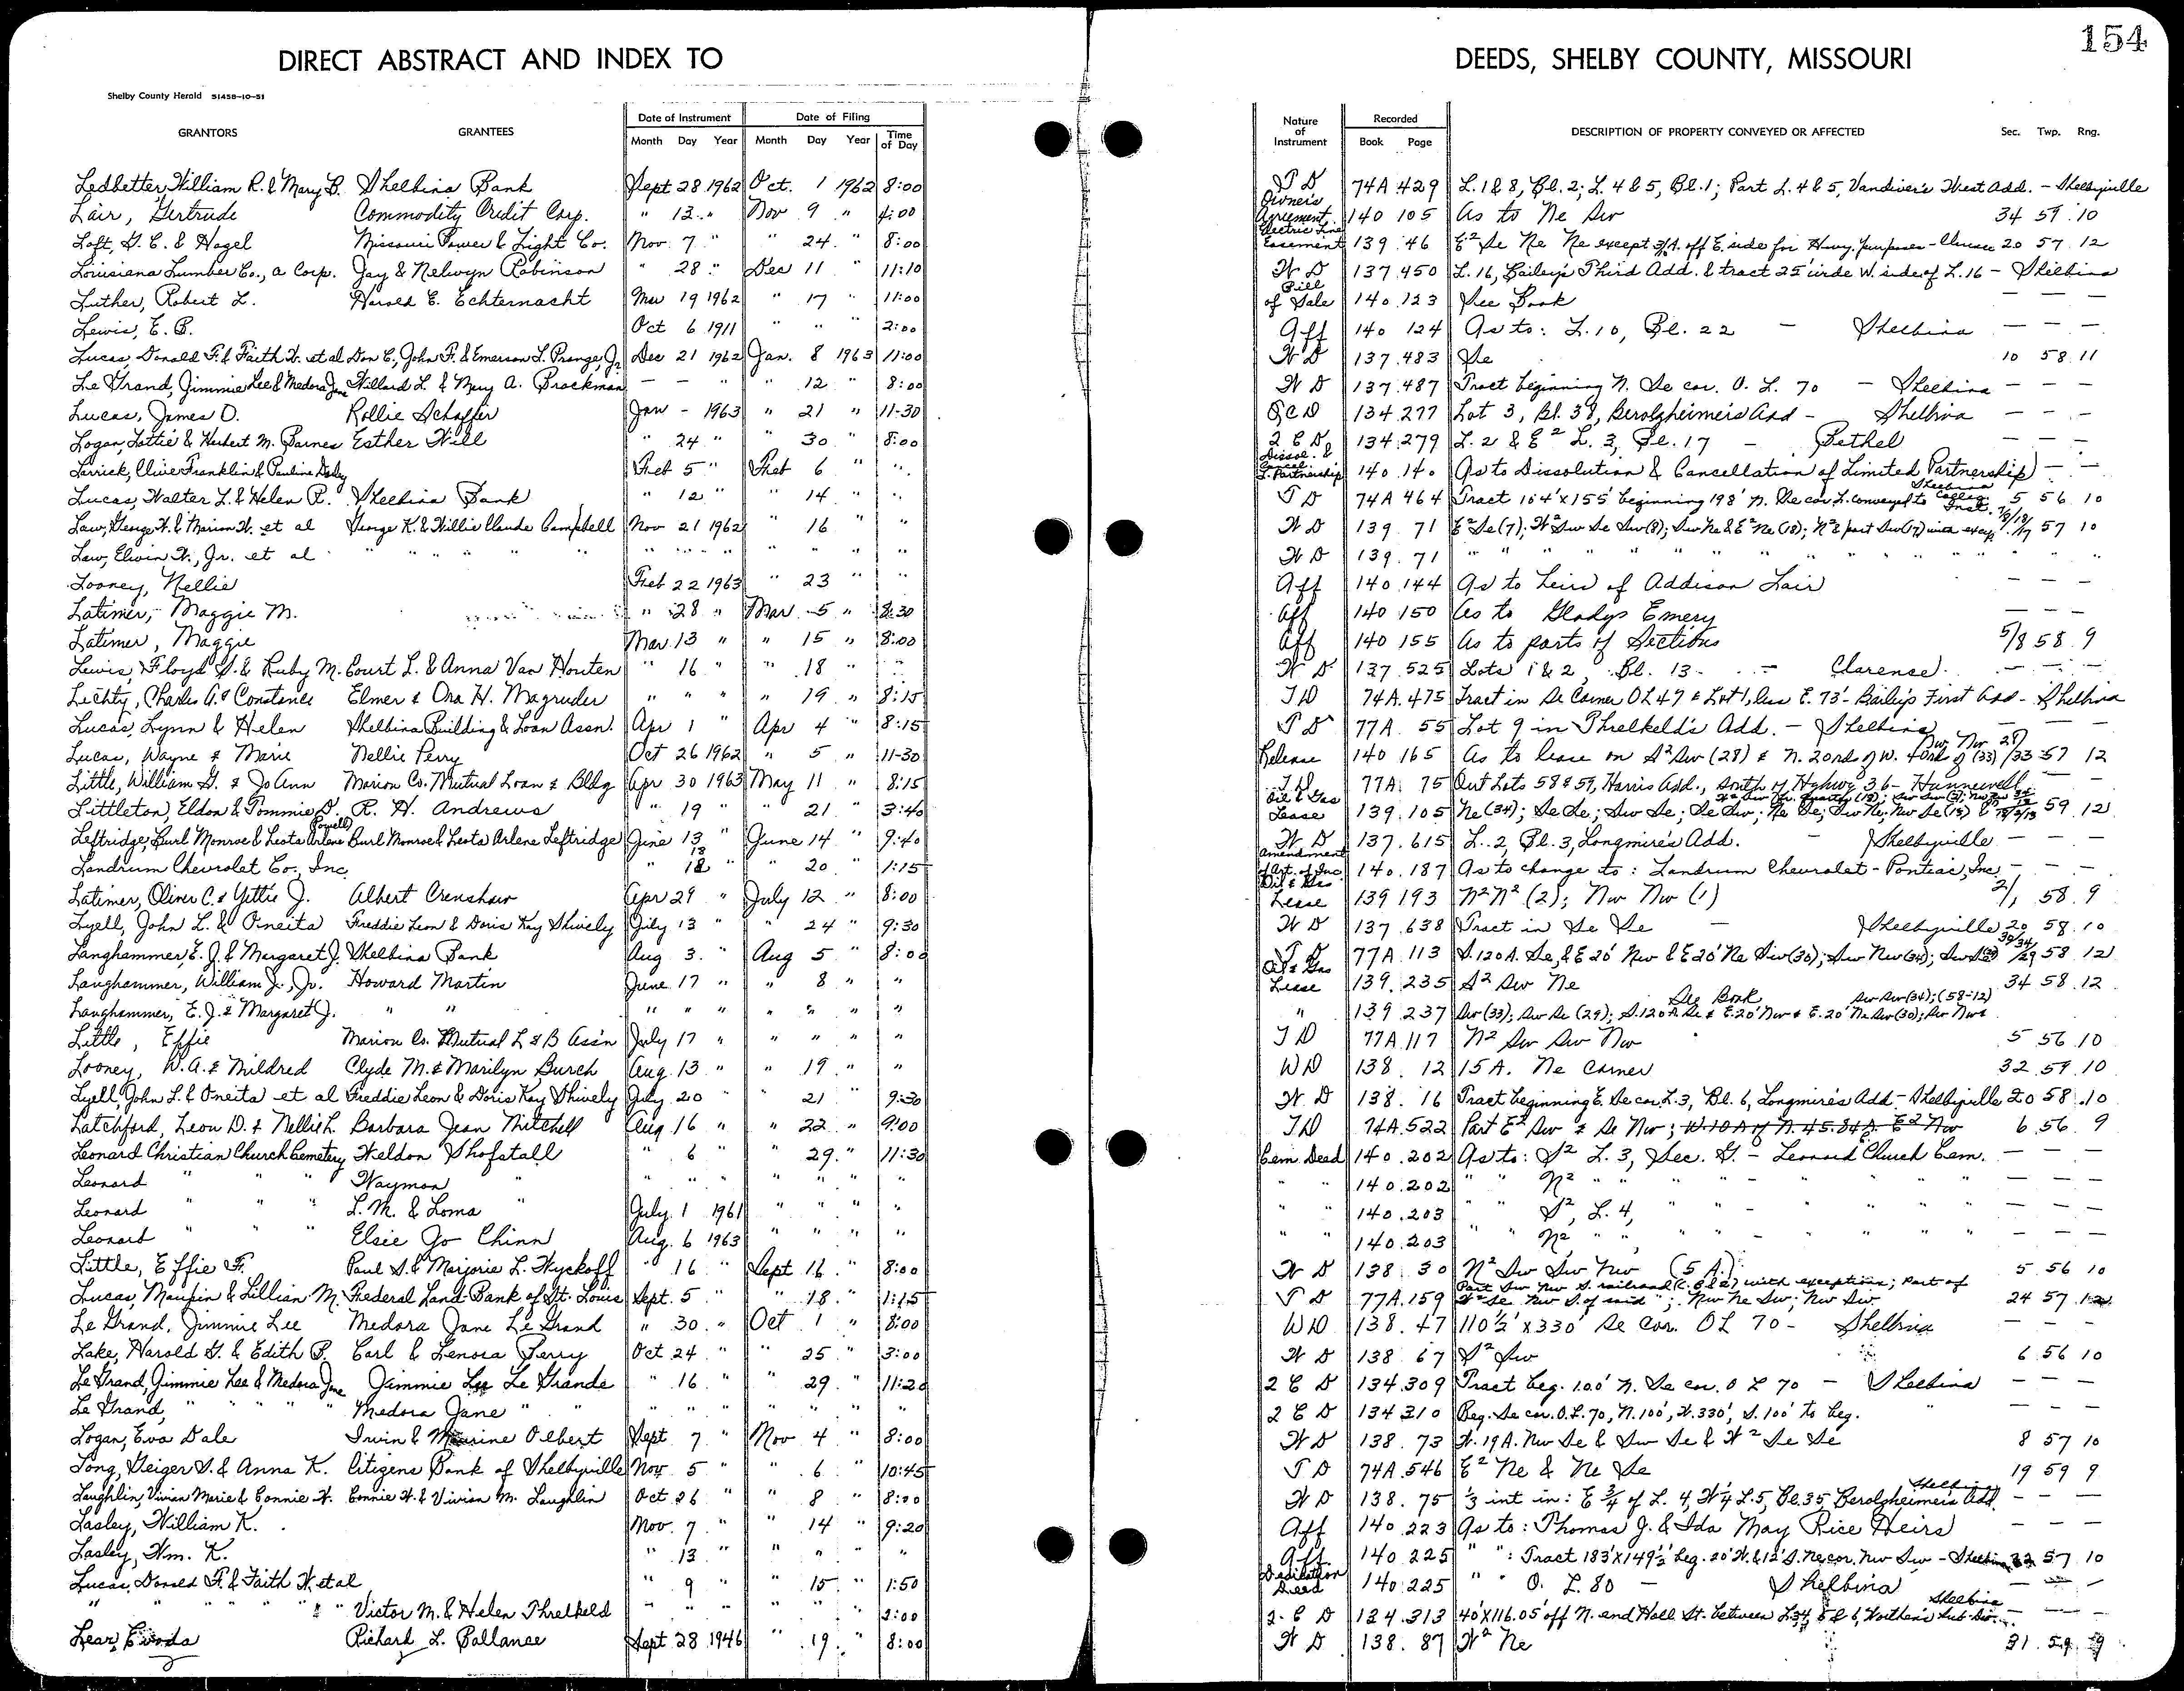 154
DIRECT ABSTRACT AND INDEX TO DEEDS, SHELBY COUNTY, MISSOURI
Shelby County Herald 51458-10-51
GRANTORS GRANTEES Date of Instrument Date of Filing Nature of Instrument Recorded DESCRIPTION OF PROPERTY CONVEYED OR AFFECTED Sec. Twp. Rng.
Month Day Year Month Day Year Time of Day Book Page
Ledbetter, William R. & Mary B. Shelbina Bank Sept 28 1962 Oct. 1 1962 8:00 T D 74A 429 L. 1 & 8, Bl. 2; L. 4 & 5, Bl. 1; Part L. 4 & 5, Vandiver's West Add. - Shelbyville
Lair, Gertrude Commodity Credit Corp. " 13 " Nov 9 " 4:00 Owner's Agreement 140 105 As to Ne Sw 34 59 10
Loft, G. C. & Hazel Missouri Power & Light Co. Nov. 7 " " 24 " 8:00 Electric Line Easement 139 46 E² Se Ne Ne except 3/4 A. off E. side for Hwy. purposes - Clarence 20 57 12
Louisiana Lumber Co., a Corp. Jay & Nelwyn Robinson " 28 " Dec 11 " 11:10 W D 137 450 L. 16, Bailey's Third Add. & tract 25' wide W. side of L. 16 - Shelbina
Luther, Robert L. Harold E. Echternacht Mar 19 1962 " 17 " 11:00 Bill of Sale 140 123 See Book — — —
Lewis, E. B. Oct 6 1911 " " " 2:00 Aff 140 124 As to: L. 10, Bl. 22 - Shelbina — — —
Lucas, Donald F. & Faith W. et al Don C., John F. & Emerson L. Prange, Jr. Dec 21 1962 Jan. 8 1963 11:00 W D 137 483 Se 10 58 11
Le Grand, Jimmie Lee & Medora Jane Willard L. & Mary A. Brockman — — " " 12 " 8:00 W D 137 487 Tract beginning N. Se cor. O. L. 70 - Shelbina — — —
Lucas, James O. Rollie Schaffer Jan - 1963 " 21 " 11-30 Q C D 134 277 Lot 3, Bl. 38, Berolzheimer's Add - Shelbina — — —
Logan, Lottie & Herbert M. Barnes Esther Will " 24 " " 30 " 8:00 Q C D 134 279 L. 2 & E² L. 3, Bl. 17 - Bethel — — —
Larrick, Clive Franklin & Pauline Feb 5 " Feb 6 " " Dissol. & Cancel L. Partnership 140 140 As to Dissolution & Cancellation of Limited Partnership — —
Lucas, Walter L. & Helen R. Shelbina Bank " 12 " " 14 " " T D 74A 464 Tract 164' x 155' beginning 198' N. Se cor L. conveyed to Shelbina Colleg. Inst. 5 56 10
Law, George W. & Marion W. et al George K. & Willie Claude Campbell Nov 21 1962 " 16 " " W D 139 71 E² Se (7); W² Sw Se Sw (8); Sw Ne & E² Ne (18); N² & part Sw (17) with excep. 7/8/18/17 57 10
Law, Elwin W., Jr. et al " " " " " " " " " " " W D 139 71 " " " " " " "
Looney, Nellie Feb 22 1963 " 23 " " Aff 140 144 As to heirs of Addison Lair — — —
Latimer, Maggie M. " 28 " Mar 5 " 8:30 Aff 140 150 As to Gladys Emery — — —
Latimer, Maggie Mar 13 " " 15 " 8:00 Aff 140 155 As to parts of Sections 5/8 58 9
Lewis, Floyd S. & Ruby M. Court L. & Anna Van Houten " 16 " " 18 " " W D 137 525 Lots 1 & 2, Bl. 13 - Clarence — — —
Lechty, Charles A. & Constance Elmer & Ora H. Magruder " " " " 19 " 8:15 T D 74A 475 Tract in Se Corner OL 47 & Lot 1, less E. 73' - Bailey's First Add - Shelbina
Lucas, Lynn & Helen Shelbina Building & Loan Assn. Apr 1 " Apr 4 " 8:15 T D 77A 55 Lot 9 in Threlkeld's Add. - Shelbina — — —
Lucas, Wayne & Marie Nellie Perry Oct 26 1962 " 5 " 11-30 Release 140 165 As to lease on S² Sw (28) & N. 20 rd of W. 40 rd of Nw Nw (33) 28/33 57 12
Little, William G. & Jo Ann Marion Co. Mutual Loan & Bldg Apr 30 1963 May 11 " 8:15 T D 77A 75 Out Lots 58 & 59, Harris Add., South of Highway 36 - Hunnewell — —
Littleton, Eldon & Tommie D. R. H. Andrews " 19 " " 21 " 3:40 Oil & Gas Lease 139 105 Ne (34); Se Se; Sw Se; Se Sw; Ne Se; Sw Ne; Nw Se (15) 59 12
Leftridge, Burl Monroe & Leota Arlene (Powell) Burl Monroe & Leota Arlene Leftridge June 13 " June 14 " 9:40 W D 137 615 L. 2, Bl. 3, Longmire's Add. - Shelbyville — —
Landrum Chevrolet Co., Inc. " 18 " 20 " 1:15 Amendment of Art. of Inc. 140 187 As to change to: Landrum Chevrolet-Pontiac, Inc. — — —
Latimer, Oliver C. & Yittie J. Albert Crenshaw Apr 29 " July 12 " 8:00 Oil & Gas Lease 139 193 N² N² (2); Nw Nw (1) 2/1 58 9
Lyell, John L. & Oneita Freddie Leon & Doris Kay Shively July 13 " " 24 " 9:30 W D 137 638 Tract in Se Se - Shelbyville 20 58 10
Langhammer, E. J. & Margaret J. Shelbina Bank Aug 3 " Aug 5 " 8:00 T D 77A 113 S. 120 A. Se, & E 20' Nw & E 20' Ne Sw (30); Sw Nw (34); 30/34/29 58 12
Langhammer, William J., Jr. Howard Martin June 17 " " 8 " " Oil & Gas Lease 139 235 S² Sw Ne 34 58 12
Langhammer, E. J. & Margaret J. " " " " " " " " " " 139 237 See Book Sw (33); Sw Se (29); S. 120 A Se & E. 20' Nw & E. 20' Ne Sw (30); Sw Nw & Sw Sw (34); (58-12)
Little, Effie Marion Co. Mutual L & B Ass'n July 17 " " " " " T D 77A 117 N² Sw Sw Nw 5 56 10
Looney, W. A. & Mildred Clyde M. & Marilyn Burch Aug 13 " " 19 " " W D 138 12 15 A. Ne Corner 32 59 10
Lyell, John L. & Oneita et al Freddie Leon & Doris Kay Shively July 20 " " 21 " 9:30 W D 138 16 Tract beginning E. Se cor. L. 3, Bl. 6, Longmire's Add - Shelbyville 20 58 10
Latchford, Leon D. & Nellie L. Barbara Jean Mitchell Aug 16 " " 22 " 9:00 T D 74A 522 Part E² Sw & Se Nw; W. 10 A of N 45.84 A. E² Nw 6 56 9
Leonard Christian Church Cemetery Weldon Shofstall " 6 " " 29 " 11:30 Cem. Deed 140 202 As to: S² L. 3, Sec. G. - Leonard Church Cem. — — —
Leonard " " " Waymon " " " " " " " " " " 140 202 " " N² " " - " " " — — —
Leonard " " " L. M. & Loma " July 1 1961 " " " " " " 140 203 " " S², L. 4, " " - " " " — — —
Leonard " " " Elsie Jo Chinn Aug. 6 1963 " " " " " " 140 203 " " N² " " " " - " " " — — —
Little, Effie F. Paul S. & Marjorie L. Wyckoff " 16 " Sept 16 " 8:00 W D 138 30 N² Sw Sw Nw (5 A.) 5 56 10
Lucas, Maupin & Lillian M. Federal Land Bank of St. Louis Sept. 5 " " 18 " 1:15 T D 77A 159 Part Sw Nw S. railroad (C. B & Q) with exceptions; Part of W² Se Nw S. of said "; Nw Ne Sw; Nw Sw 24 57 12
Le Grand, Jimmie Lee Medora Jane Le Grand " 30 " Oct 1 " 8:00 W D 138 47 110½' x 330' Se Cor. OL 70 - Shelbina — — —
Lake, Harold G. & Edith B. Carl & Lenora Perry Oct 24 " " 25 " 3:00 W D 138 67 S² Sw 6 56 10
Le Grand, Jimmie Lee & Medora Jane Jimmie Lee Le Grande " 16 " " 29 " 11:20 Q C D 134 309 Tract beg. 100' N. Se cor. O L 70 - Shelbina — — —
Le Grand, " " " " Medora Jane " " " " " " " " Q C D 134 310 Beg. Se cor. O. L. 70, N. 100', W. 330', S. 100' to beg. " — — —
Logan, Eva Dale Irwin & Maurine Olbert Sept 7 " Nov 4 " 8:00 W D 138 73 W. 19 A. Nw Se & Sw Se & W² Se Se 8 57 10
Long, Geiger S. & Anna K. Citizens Bank of Shelbyville Nov 5 " " 6 " 10:45 T D 74A 546 E² Ne & Ne Se 19 59 9
Laughlin, Vivian Marie & Connie W. Connie W. & Vivian M. Laughlin Oct 26 " " 8 " 8:00 W D 138 75 1/3 int in: E 3/4 of L. 4, W 1/4 L. 5, Bl. 35, Berolzheimer's Add. Shelbina — — —
Lasley, William K. Nov. 7 " " 14 " 9:20 Aff 140 223 As to: Thomas J. & Ida May Rice Heirs — — —
Lasley, Wm. K. " 13 " " " " " Aff. 140 225 " ": Tract 183' x 149½' beg. 20' W. & 12' S. Ne cor. Nw Sw - Shelbina 57 10
Lucas, Donald F. & Faith W. et al " 9 " " 15 " 1:50 Dedication Deed 140 225 " " O. L. 80 - Shelbina — — —
" " " " " " Victor M. & Helen Threlkeld " " " " " " 2:00 Q C D 134 313 40' x 116.05' off N. end Hall St. between Sub-Div. Shelbina — — —
Lear, Richard L. Ballance Sept 28 1946 " 19 " 8:00 W D 138 87 W² Ne 31 59 9